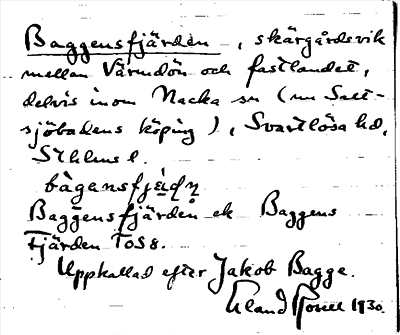 Baggensfjärden, skärgårdsvik
mellan Värmdön och fastlandet,
delvis inom Nacka sn (nu Salt-
sjöbadens köping), Svartlösa hd,
Sthlms l.
bàgensfjè̱ḏṉ
Baggensfjärden ek Baggens
Fjärden TOS 8.
Uppkallad efter Jakob Bagge.
Erland 1930